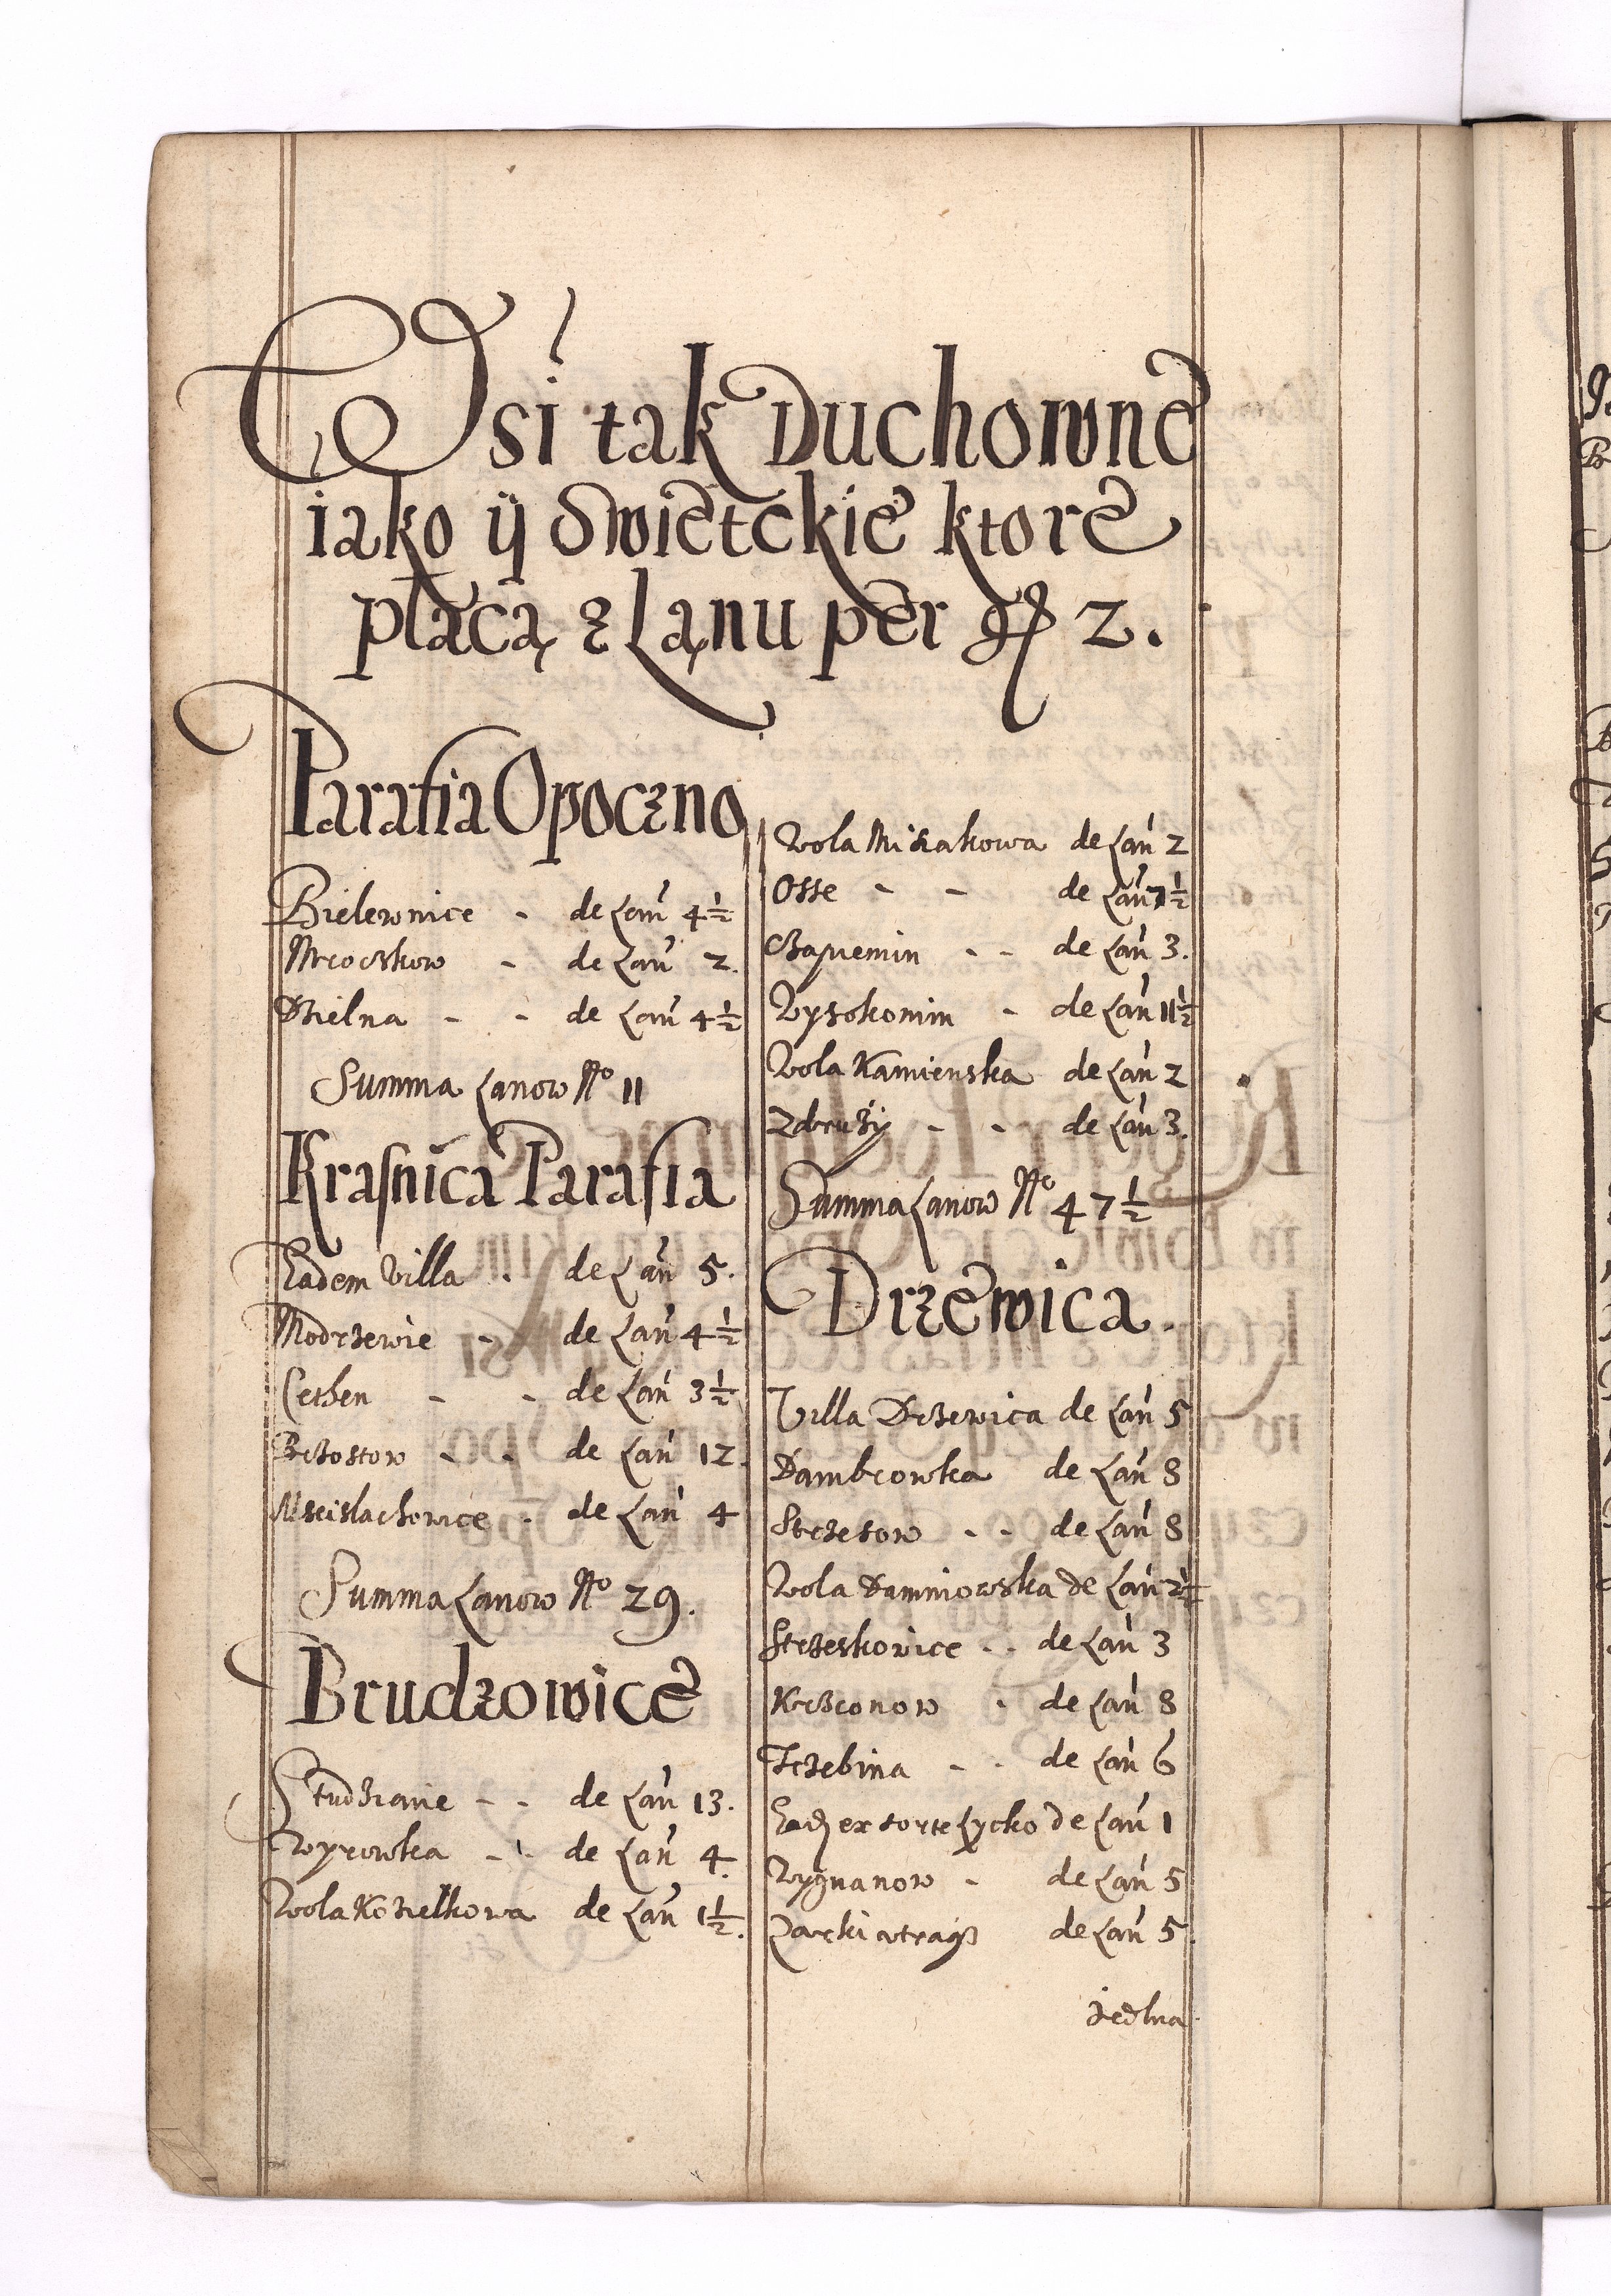 Wsi tak Duchowne
iako ÿ Swietckie ktore
płacą z Łanu per gr 2.
Parafia Opoczno
Bielewnice - de Łan 4 1/2
Mroczkow - de Łan 2.
Dzielna - - de Łan 4 1/2
Summa Łanow No 11
Krasnica Parafia
Eadem Villa - de Łan 5.
Modrzewie - de Łan 4 1/2
Cethen - - de Łan 3 1/2
Brzostow - - de Łan 12.
Mscislachowice - de Łan 4
Summa Łanow No 29.
Brudzowice
Studziane - - de Łan 13.
Wyrowka - - de Łan 4.
Wola Kozielkowa de Łan 1 1/2.
Wola Misiakowa de Łan 2
Osse - - de Łan 7 1/2
- - de Łan 3.
Wysokomin - de Łan 11 1/2
Wola Kamienska de Łan 2
Zdruży - - de Łan 3.
Summa Łanow No 47 1/2
Drzewica.
Villa Drzewica de Łan 5
Dambrowka de Łan 8
Strzesow - - de Łan 8
Wola Damniowska de Łan 2 1/2
Strzeskowice - - de Łan 3
Krzconow - de Łan 8
Trzebina - - de Łan 6
ex sorte Łycko de Łan 1
Wygnanow - de Łan 5
de Łan 5.
Jedlna